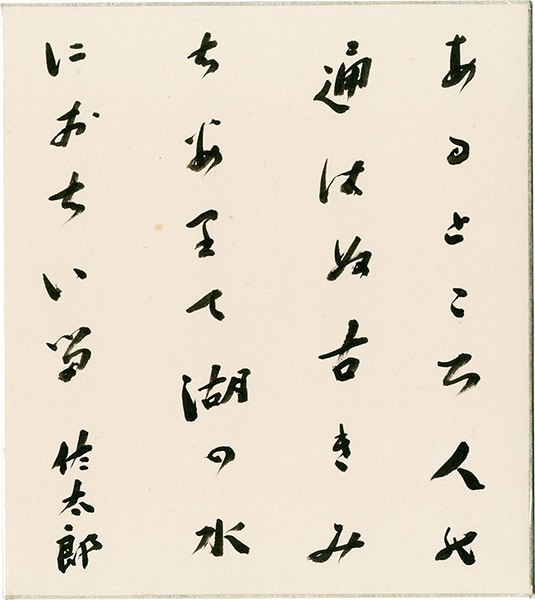 あるところ人も
通はぬ古きみ
ちありて湖の水
におちいる 佐太郎